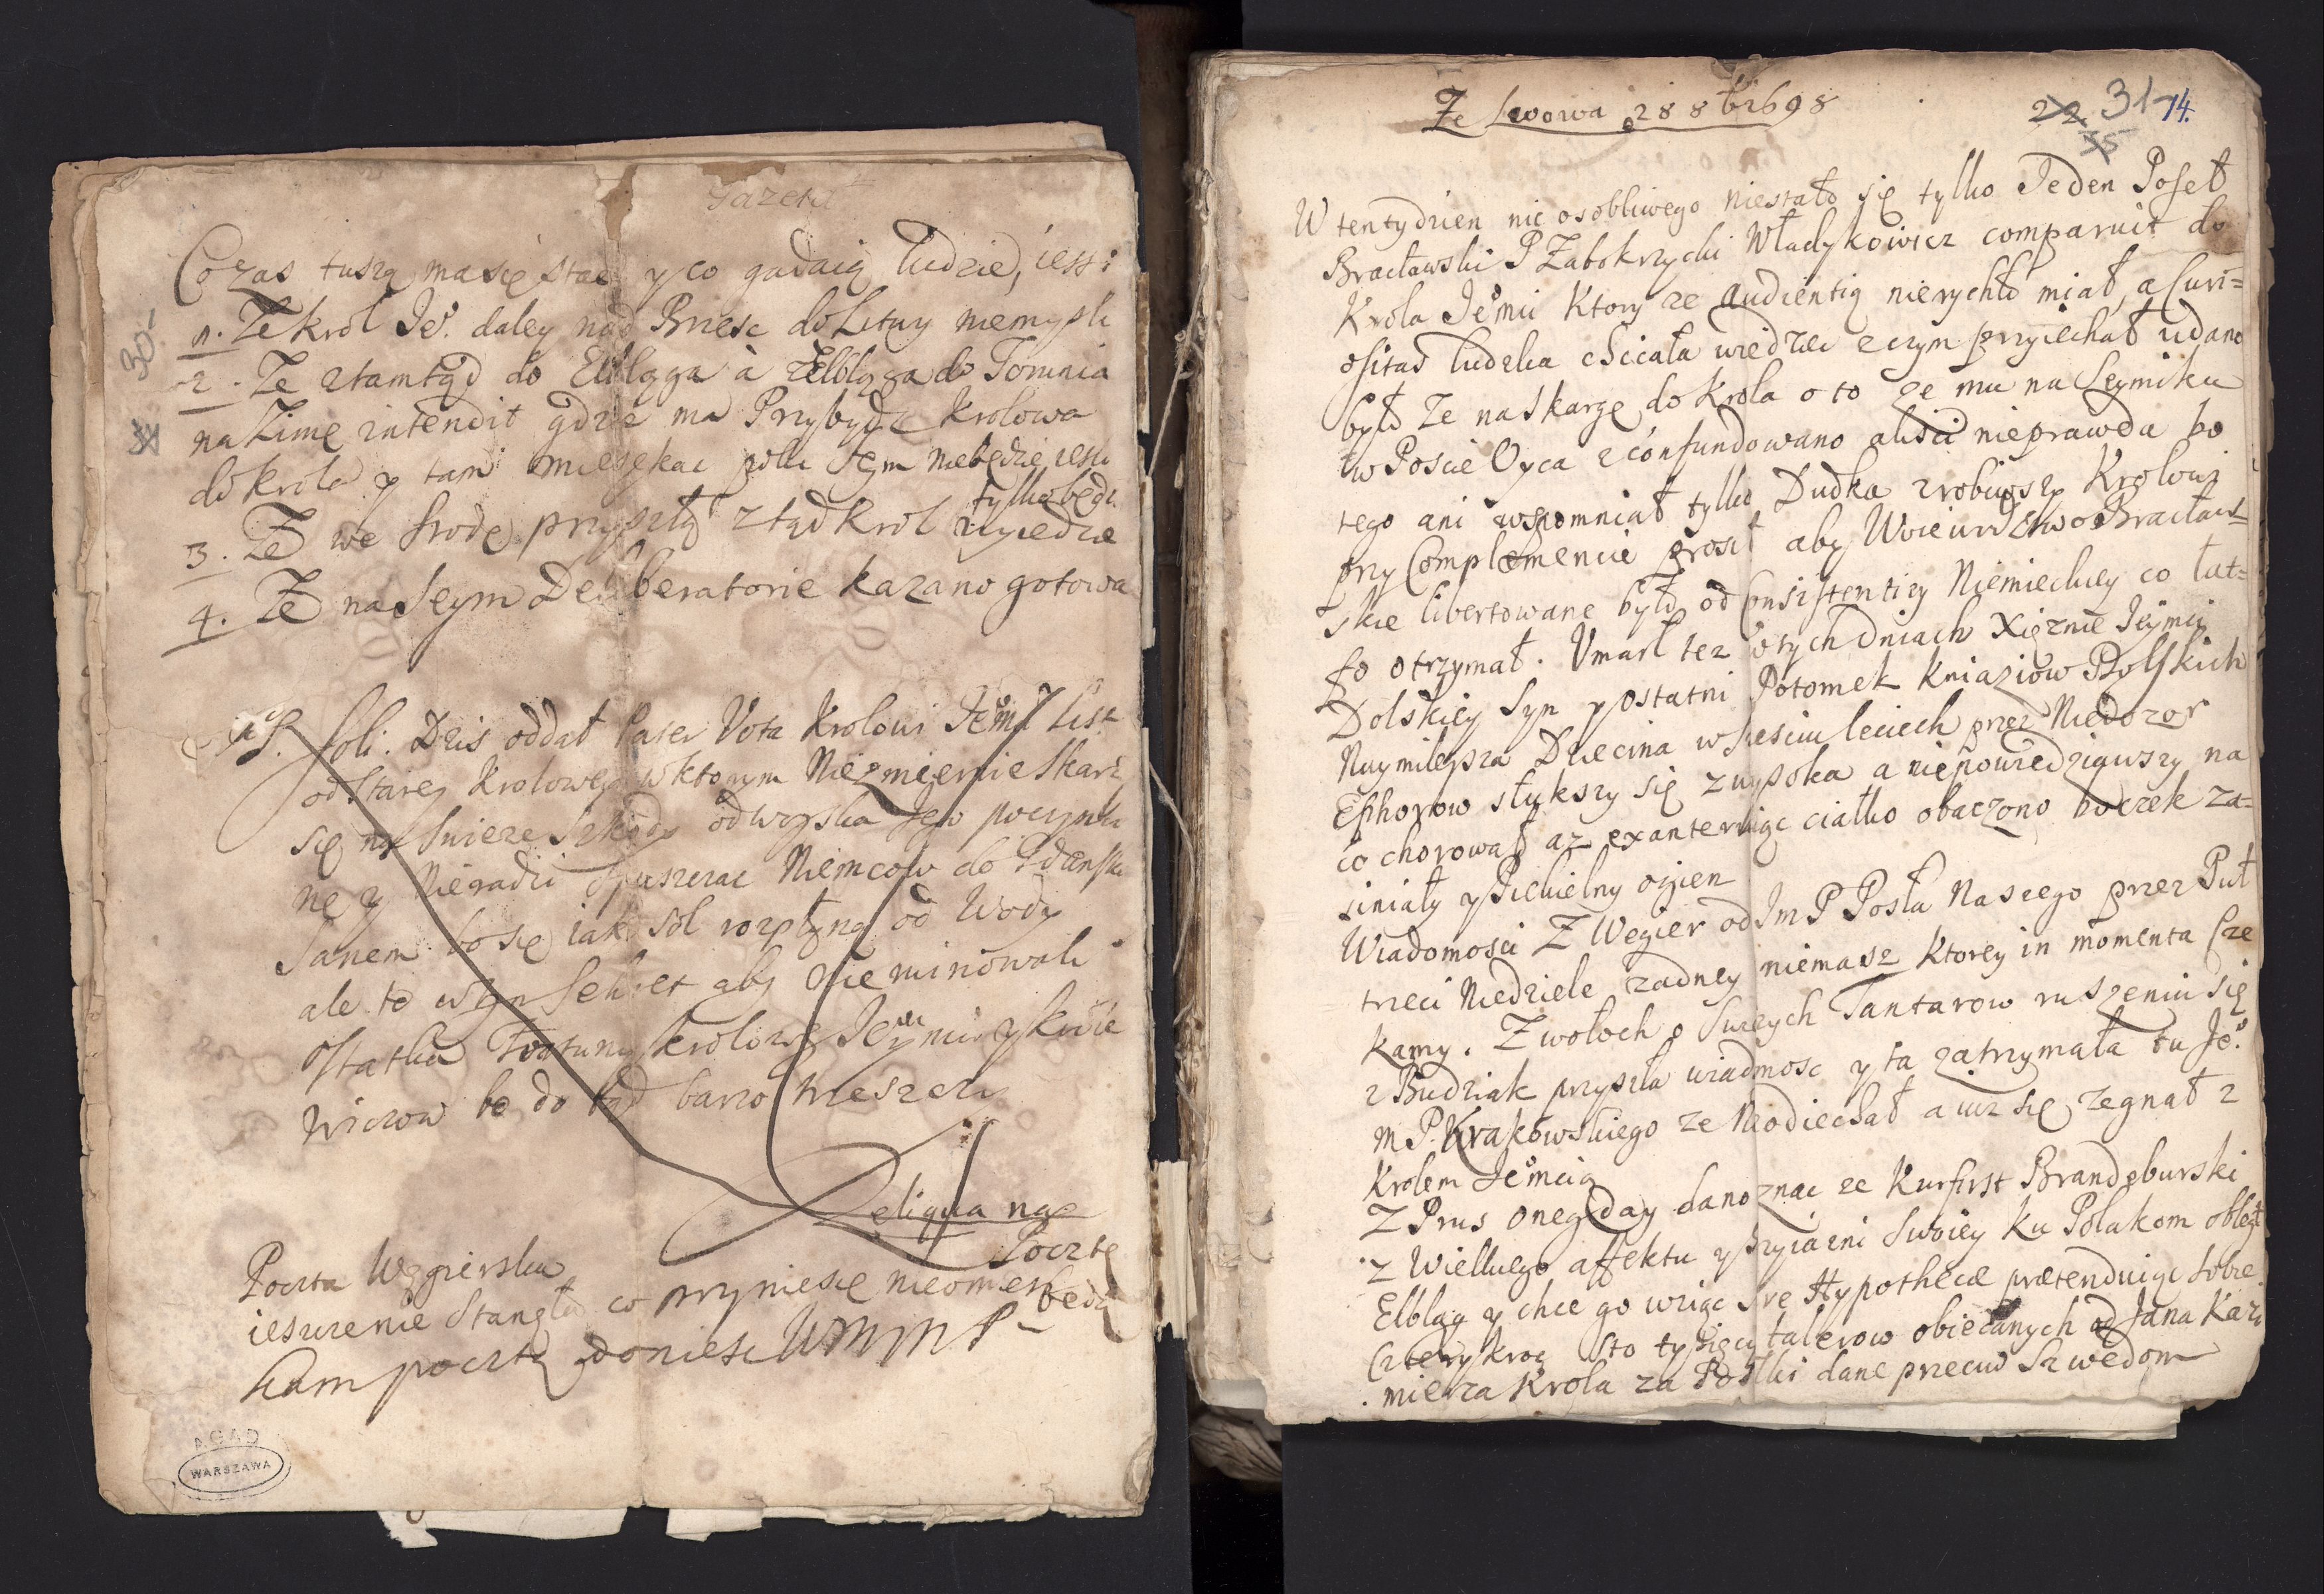 Gazeta
Co zas tuszą ma się stac y co gadaią ludzie, iest:
1. Ze krol Je͠o. daley nad Brzesc do Litwy niemysli
2. Ze ztamtąd do Elbląga à z Elbląga do Torunia
na Zimę intendit gdzie ma Przybydz Krolowa
do krola y tam mieszkac poki Seym niebędzie iesli
tylko będz.
3. Ze we srodę przyszłą ztąd Krol wyiedzie
4. Ze na Seym Deliberatorie kazano gotowa
30
PS. soli. Dzis oddał Pater Vota Krolowi Jemći List
od Starey Krolowey w ktorym Niezmiernie skarż
się na swieze szkody od woyska Jego poczynio
ne y nieradzi spuszczac Niemcow do Gdanska
Sanem bo się iak sol rozpłyną od Wody
ale to w tym sekret aby nie ruinowali
ostatka Fortuny krolowey Jeymći y krole
wiczow bo do tąd barzo trzeszczy
Reliqua na
Pocztę
Poczta Węgierska
ieszcze nie stanęła co przyniesie nieomieszk
będą
kam pocztą doniesc WMMP
AGAD
WARSZAWA
Ze Lwowa 28 8br 1698
22 31 74.
35
W ten tydzien nic osobliwego niestało się tylko Jeden Poseł
Bracławski P Zabokrzycki Władykowicz comparuit do
Krola Jemći Ktory ze audientią nierychło miał, a Curi=
ositas ludzka chciała wiedziec z czym przyiechał udano
było ze na Skargę do Krola o to ze mu na Seymiku
w Poscie Oyca zconfundowano aliści nieprawda bo
tego ani wspomniał tylko Dudka zrobiwszy Krolowi
przy Complemencie prosił aby Woiewodztwo Bracław=
skie libertowane było od Consistentiey Niemieckiey co łat=
fo otrzymał. Umarł tez w tych dniach Xięznie Jeymci
Dolskiey Syn y ostatni Potomek Kniaziow Dolskich
Naymilsza Dziecina w sześciu leciech przez Niedozor
Ephorow stłukszy się z wysoka a niepowiedziawszy na
co chorował az exanteruiąc ciałko obaczono boczek za=
siniały y Piekielny ogien
Wiadomosci Z Węgier od Jm P Posła Naszego przez Puł
trzeci Niedziele zadney niemasz Ktorey in momenta Cze
kamy. Z wołoch o swiezych Tantarow ruszeniu się
z Budziak przyszła wiadmosc y ta zatrzymała tu Je͠o.
m P. Krakowskiego ze Nieodiechał a iuz się zegnał z
Krolem Jemcią
Z Prus onegday dano znac ze Kurfirst Brandeburski
z Wielkiego affektu y Przyiazni swoiey Ku Polakom obległ
Elbląg y chce go wziąc iure Hypothecæ prætenduiąc sobie
Cztery kroć sto tysięcy talerow obiecanych od Jana Kazi
mierza Krola za Posiłki dane przeciw Szwedom